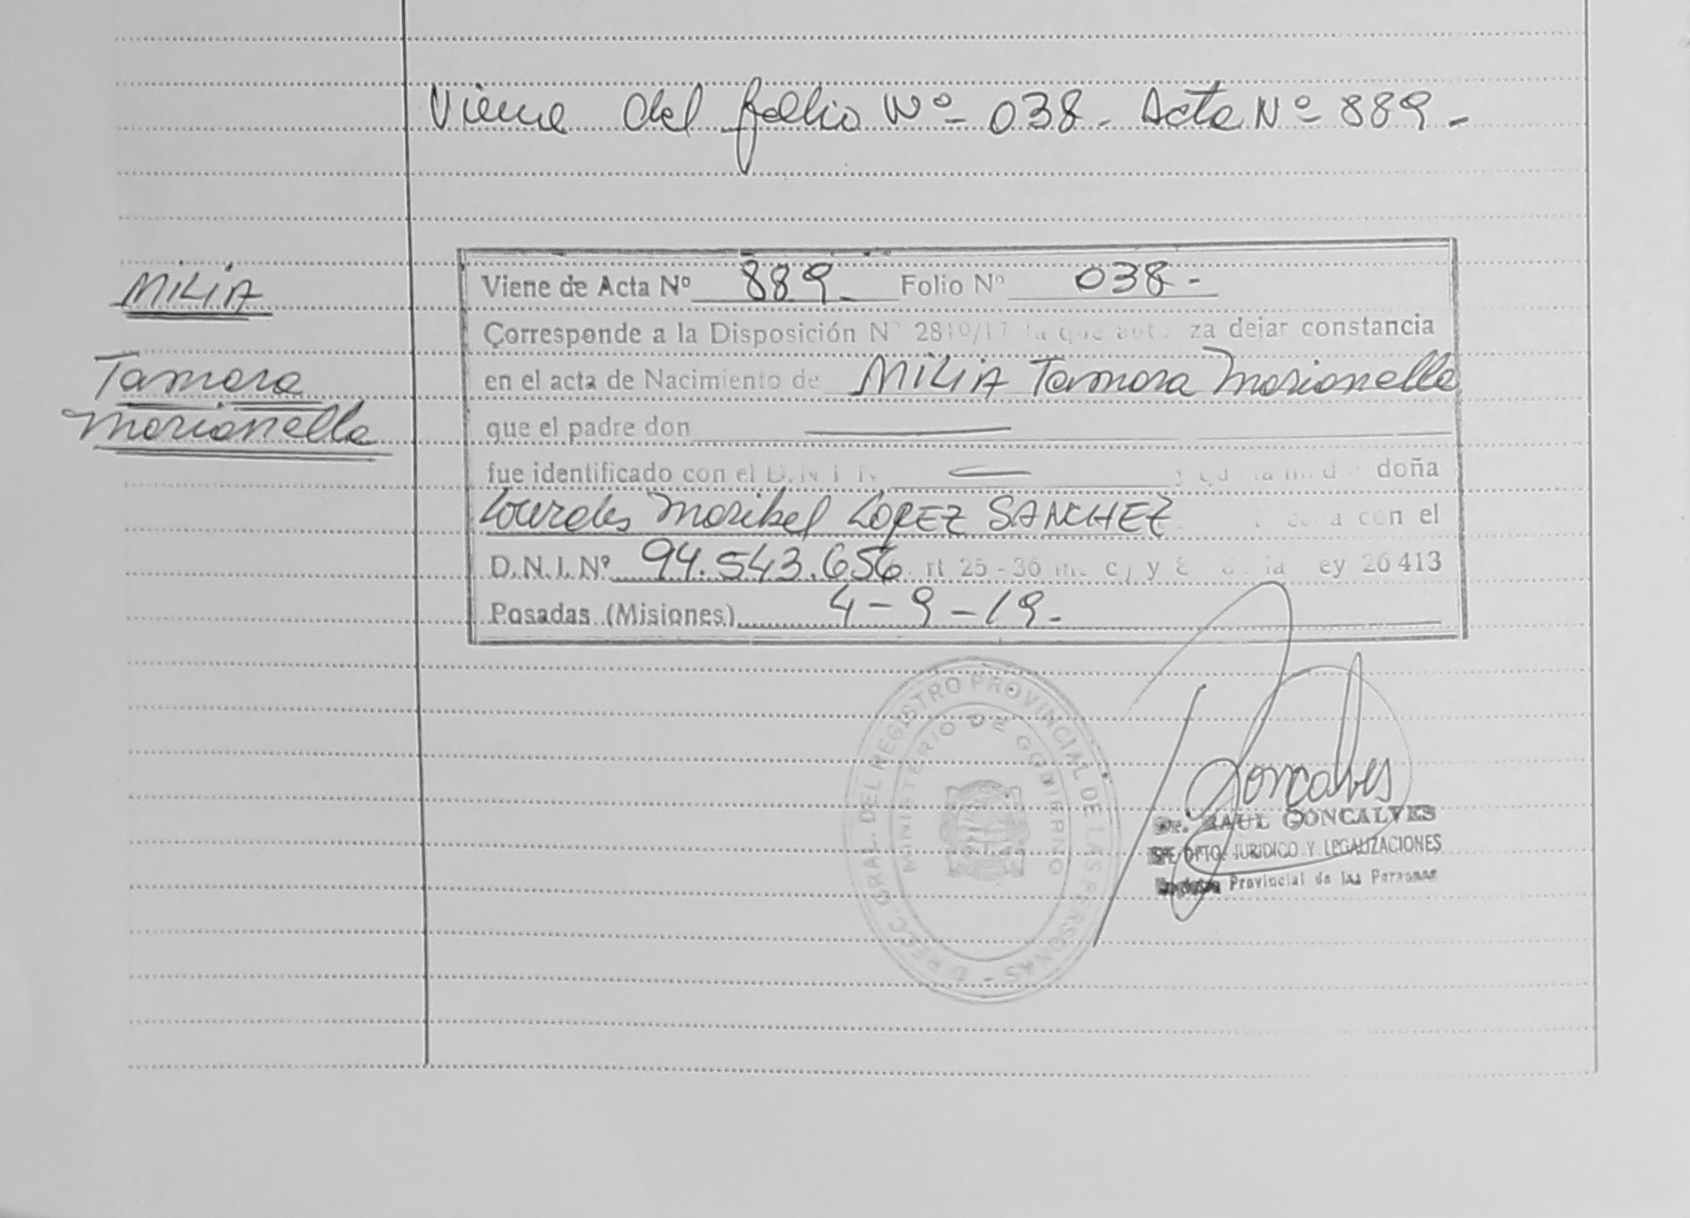 Viene del folio Nº - 038 - Acta Nº 889 -
MILIA
Tamara
Marianella
Viene de Acta Nº 889 - Folio Nº 038 -
Corresponde a la Disposición Nº 2810/17 la que auto za dejar constancia
en el acta de Nacimiento de MILIA Tamara Marianella
que el padre don
fue identificado con el D.N.I. N doña
Lourdes Maribel LOPEZ SANCHEZ con el
D.N.I. Nº 94.543.656 rt 25 - 36 in c) y ey 26413
Posadas (Misiones) 4 - 9 - 19 -
DIRECC. GRAL. DEL REGISTRO PROVINCIAL DE LAS PERSONAS -
MINISTERIO DE GOBIERNO
Goncalves
Dr. RAUL GONCALVES
DPTO. JURIDICO Y LEGALIZACIONES
Registro Provincial de las Personas